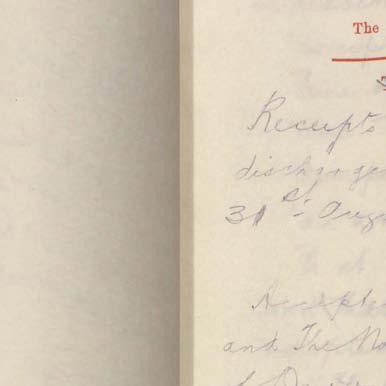 The
Receipts
discharge
31st Aug
Accepts
and The No